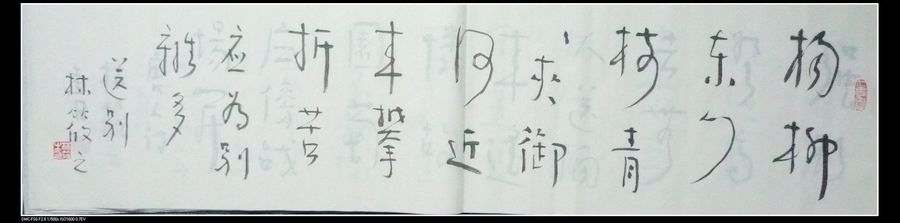 楊柳
东风
树青
々夹御
河近
来攀
折苦
应为别
離多
送别
林散之